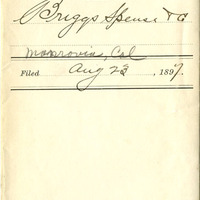 Briggs Spense & Co
Monrovia, Cal
Filed Aug 23, 1897.